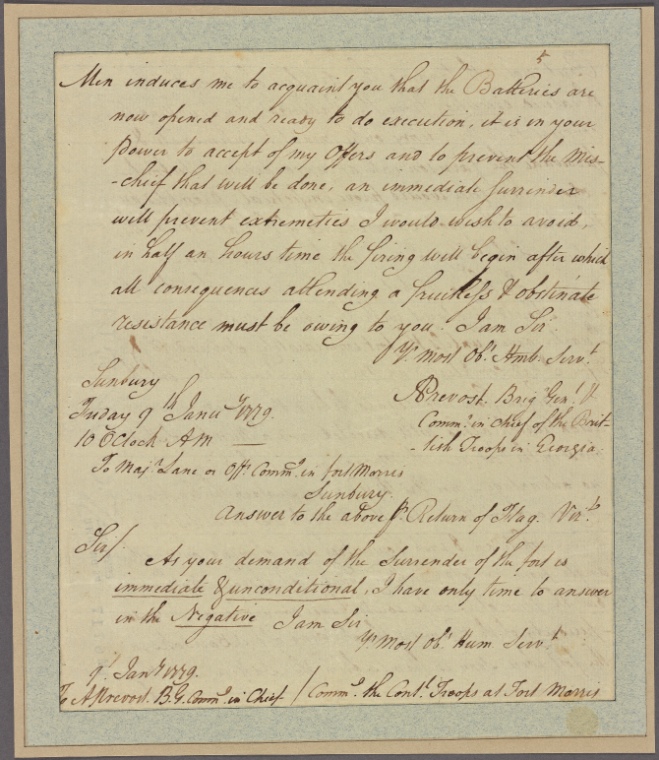 5
Men induces me to acquaint you that the Batteries are
now opened and ready to do execution, it is in your
Power to accept of my Offers and to prevent the Mis-
-chief that will be done, an immediate Surrender
will prevent extremeties I would wish to avoid,
in half an hours time the firing will begin after which
all consequences attending a fruitless & obstinate
resistance must be owing to you. I am Sir
Yr. most Obt. Hmb. Servt.
Sunbury
APrevost. Brig Genl. &
Tusday 9th Janury 1779.
Commr. in chief of the Brit-
10 OClock AM —
-tish Troops in Georgia.
To Majr. Lane or Offr. Commg. in fort Morris
Sunbury.
Answer to the above pr. Return of Flag. Vizt.
Sir/
As your demand of the Surrender of the fort is
immediate & unconditional, I have only time to answer
in the Negative I am Sir
Yr Most Obt Hum Servt
9th Jany 1779.
To APrevost. B.G. Commr. in Chief / Commg. the Contl. Troops at Fort Morris